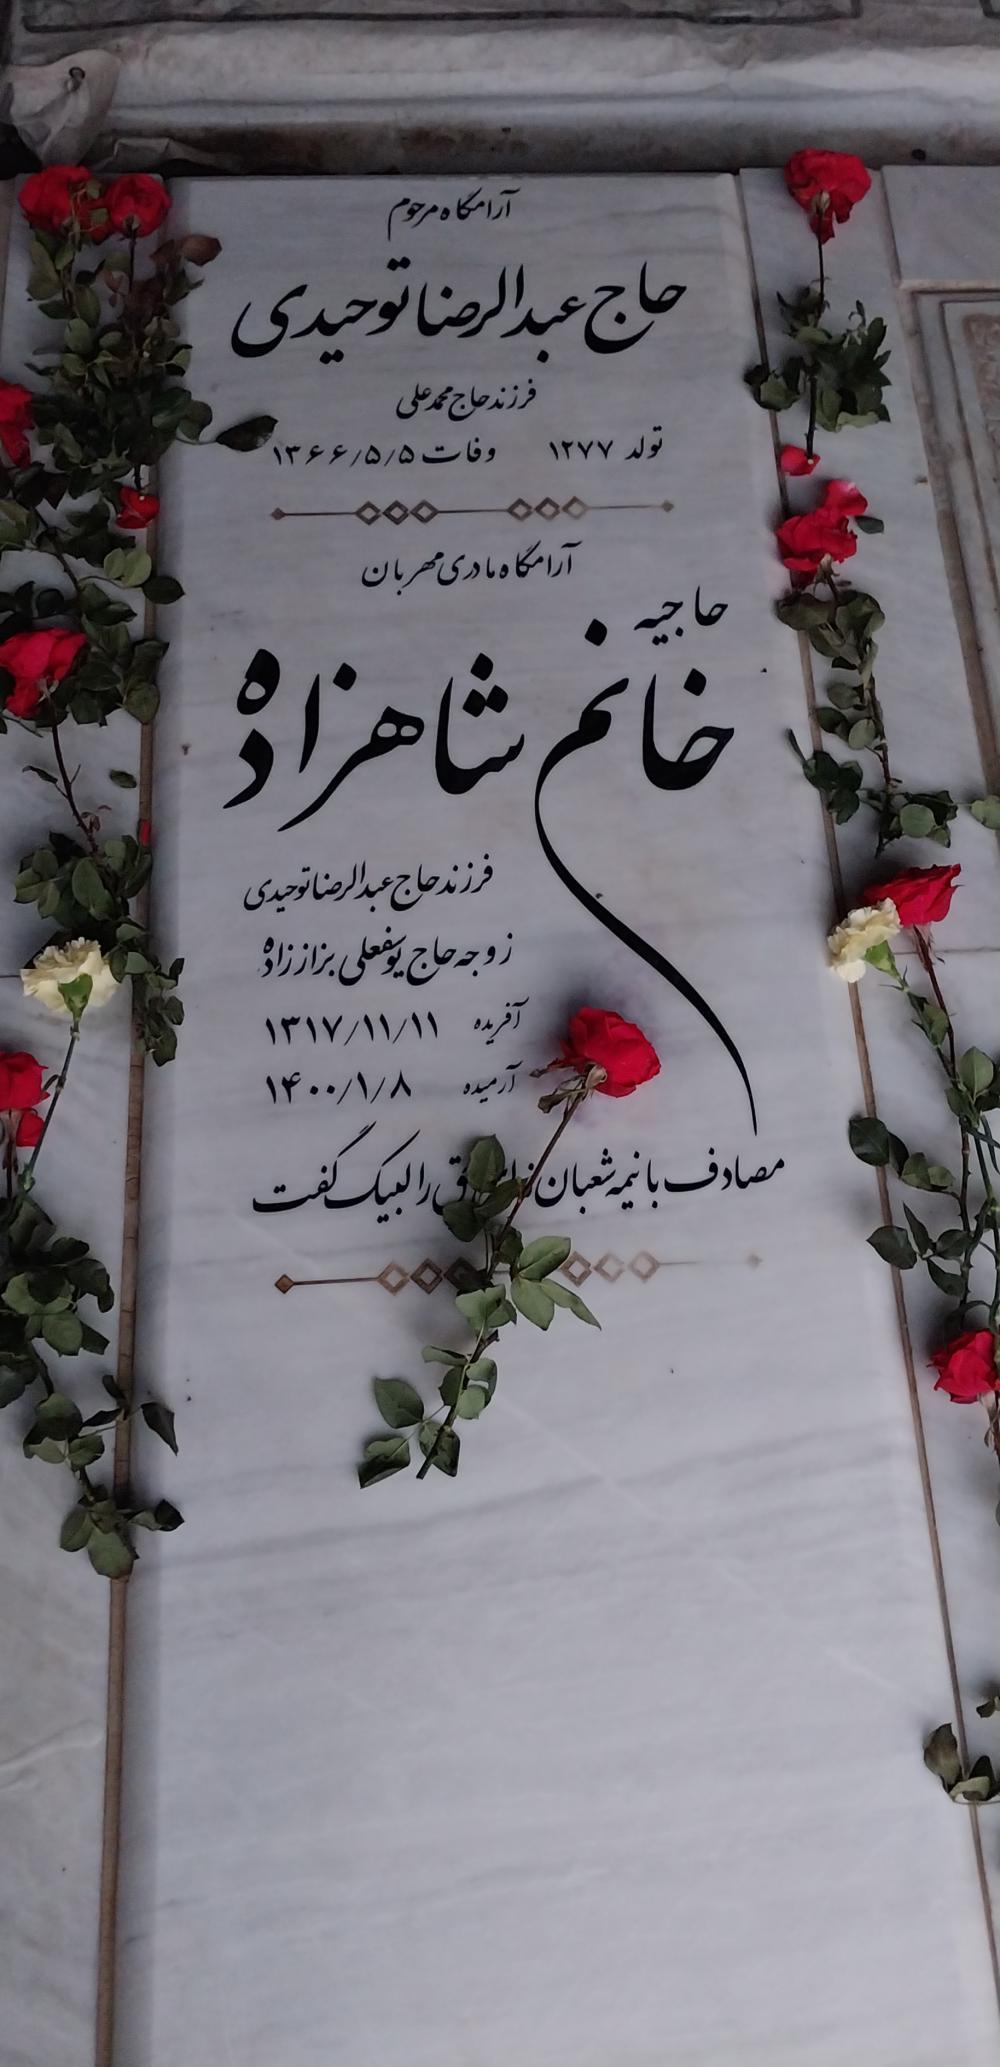 آرامگاه مرحوم
حاج عبدالرضا توحیدی
فرزند حاج محمدعلی
تولد ۱۲۷۷ وفات ۱۳۶۶/۵/۵
آرامگاه مادری مهربان
حاجیه
خانم شاهزاده
فرزند حاج عبدالرضا توحیدی
زوجه حاج یوسفعلی بزاززاده
آفریده ۱۳۱۷/۱۱/۱۱
آرمیده ۱۴۰۰/۱/۸
مصادف با نیمه شعبان را لبیک گفت